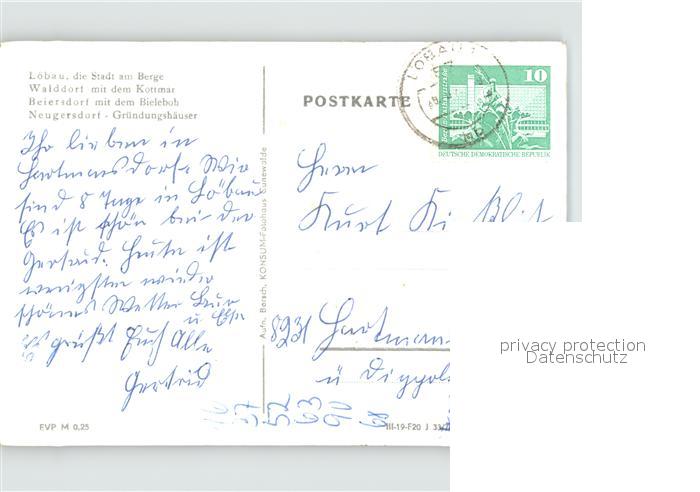 Löbau, die Stadt am Berge
Walddorf mit dem Kottmar
Beiersdorf mit dem Bieleboh
Neugersdorf - Gründungshäuser
Ihr lieben in
Hartmannsdorf. Wir
sind 8 Tage in Löbau
Es ist schön bei der
Gertrud. Heute ist
wenigsten wieder
schönes Wetter
u
Es grüßt Euch Alle
Gertrud
EVP M 0,25
Aufn. Bersch, KONSUM-Fotohaus Cunewalde
POSTKARTE
LÖBAU
10
DEUTSCHE DEMOKRATISCHE REPUBLIK
Herrn
Kurt
8231 Hartman
ü Dippol
III-19-F20 J
privacy protection
Datenschutz